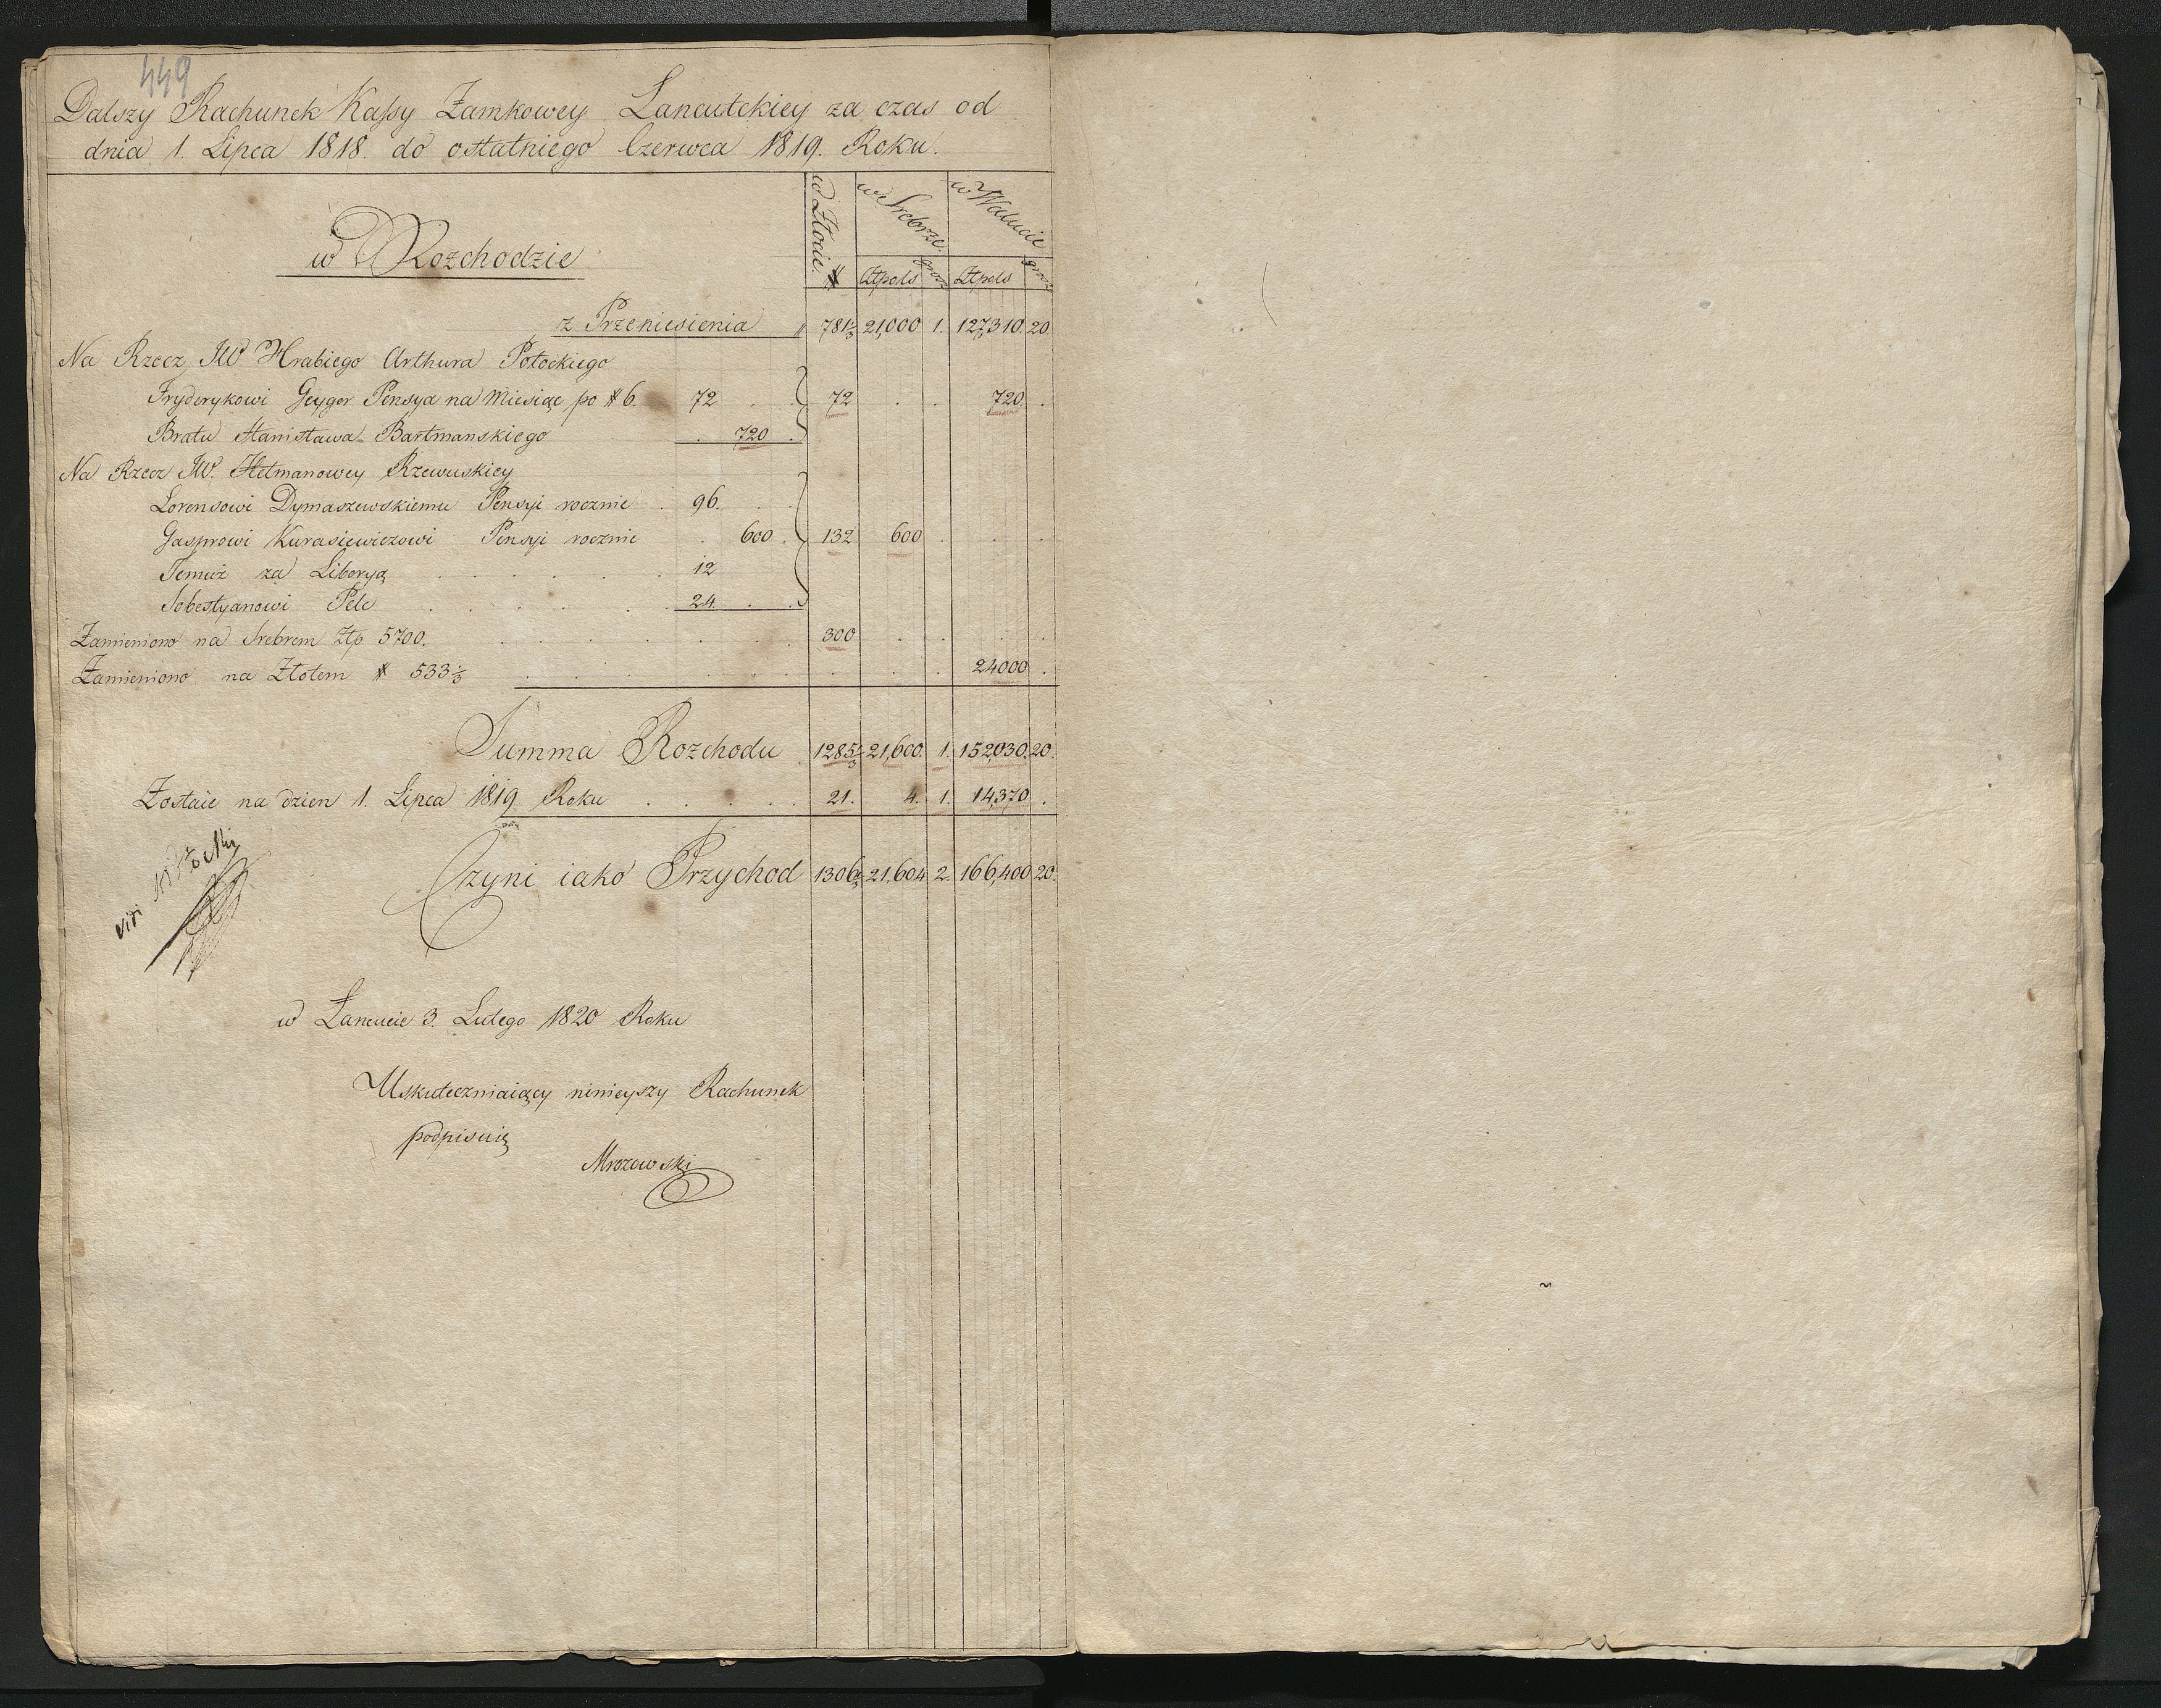 449
Dalszy Rachunek Kassy Zamkowey Łancutckiey za czas od
dnia 1. Lipca 1818. do ostatniego Czerwca 1819. Roku.
w Rozchodzie
w Złocie. #
we Srebrze. Złpols grosz
w Walucie Złpols grosz
z Przeniesienia " 781⅓ 21,000 1. 127,310. 20.
Na Rzecz JW Hrabiego Arthura Potockiego
Fryderykowi Geyger Pensya na Miesiąc po # 6. 72 . . 72 . . 720 .
Bratu Stanisława Bartmanskiego . 720 .
Na Rzecz JW. Hetmanowey Rzewuskiey
Lorensowi Dymaszewskiemu Pensyi rocznie . 96. . .
Gasprowi Kurasiewiczowi Pensyi rocznie . 600 . 132 600 . . .
Temuż za Liberyą . . . . . 12
Sobestyanowi Pele . . . . . 24. . .
Zamieniono na Srebrem Złp 5700. . . . . . 300 . . . .
Zamieniono na Złotem # 533⅓ . . . . . . . . . 24000 .
Summa Rozchodu 1285⅓ 21,600. 1. 152,030. 20.
Zostaie na dzien 1. Lipca 1819 Roku . . . . . 21. 4. 1. 14,370 .
Czyni iako Przychod 1306⅓ 21,604 2. 166,400 20.
vidi
w Łancucie 3. Lutego 1820 Roku
Uskuteczniaiący ninieyszy Rachunek
podpisuię
Mrozowski